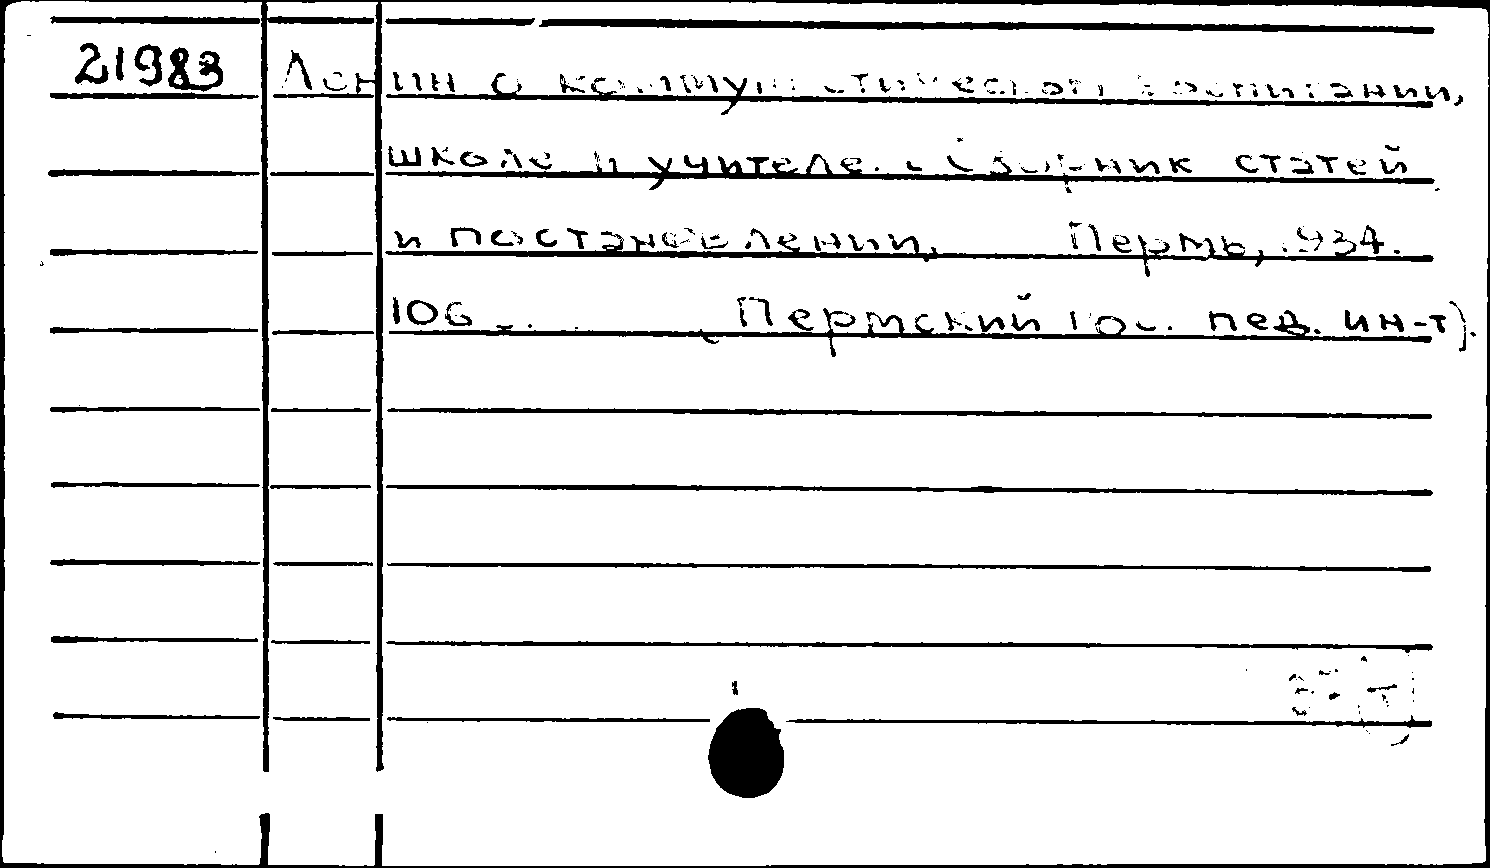 21983 Ленин о коммунистическом воспитании,
школе и учителе. Сборник статей
и постановлений. Пермь, 1934.
106 с. (Пермский гос. пед. ин-т).